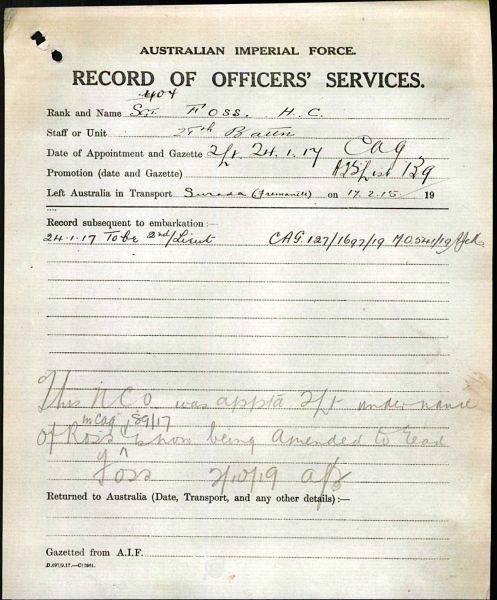 AUSTRALIAN IMPERIAL FORCE.
RECORD OF OFFICERS' SERVICES.
404
Rank and Name Sgt. FOSS. H. C.
Staff or Unit 28th Battn
Date of Appointment and Gazette 2/Lt. 24.1.17 CAG
Promotion (date and Gazette) 139
Left Australia in Transport Surada (Fremantle) on 17.2.15 19
Record subsequent to embarkation:—
24.1.17 To be 2nd/Lieut CAG. 127/1697/19
This NCO was apptd 2/Lt under name
in Cag 89/17
of Ross & is now being amended to read
Foss 2/10/19
Returned to Australia (Date, Transport, and any other details):—
Gazetted from A.I.F.